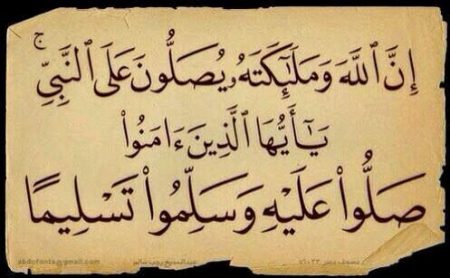 إِنَّ ٱللَّهَ وَمَلَٰٓئِكَتَهُۥ يُصَلُّونَ عَلَى ٱلنَّبِيِّۚ
يَٰٓأَيُّهَا ٱلَّذِينَ ءَامَنُوا۟
صَلُّوا۟ عَلَيْهِ وَسَلِّمُوا۟ تَسْلِيمًا